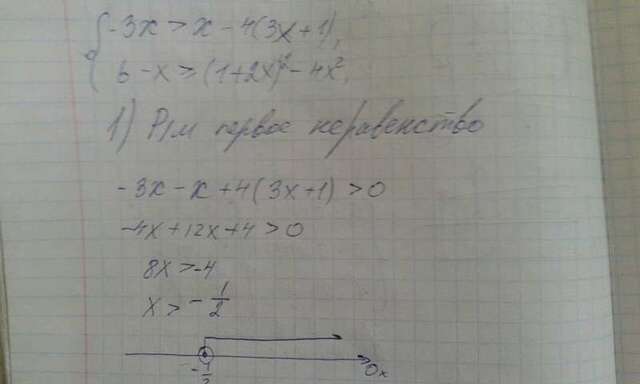 -3x > x - 4(3x+1),
6 - x ≥ (1+2x)² - 4x²,
1) Рш первое неравенство
-3x - x + 4(3x+1) > 0
-4x + 12x + 4 > 0
8x > -4
x > -1/2
-1/2 Ox